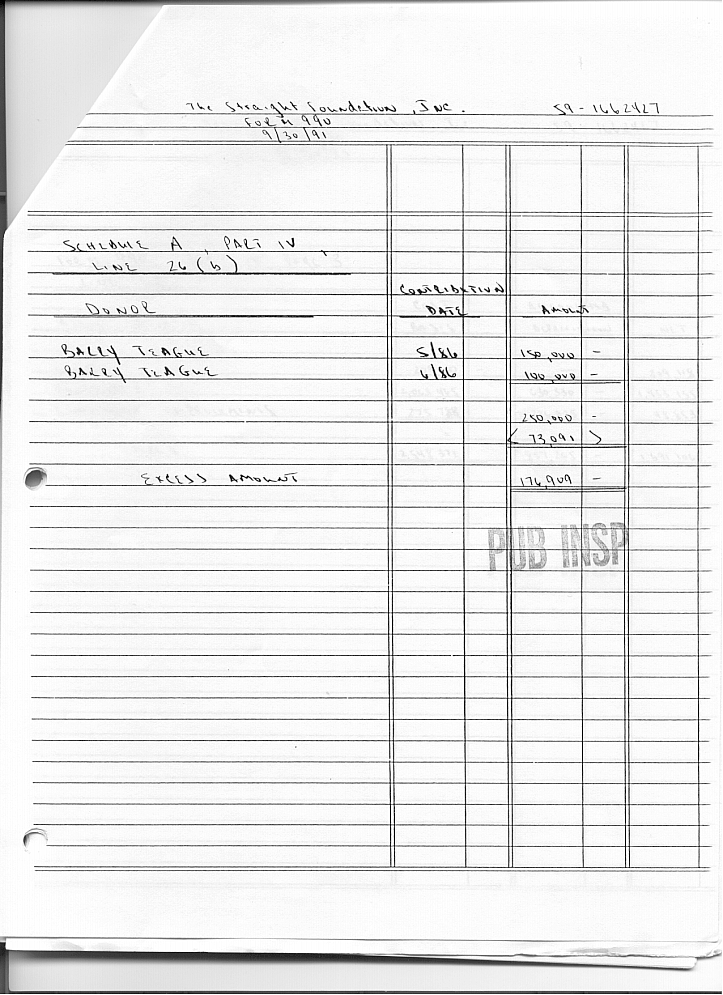 The Straight Foundation, Inc. 59-1662427
FORM 990
9/30/91
SCHEDULE A, PART IV,
LINE 26(b)
CONTRIBUTION
DONOR DATE AMOUNT
BARRY TEAGUE 5/86 150,000 -
BARRY TEAGUE 6/86 100,000 -
250,000 -
< 73,091 >
EXCESS AMOUNT 176,909 -
PUB INSP